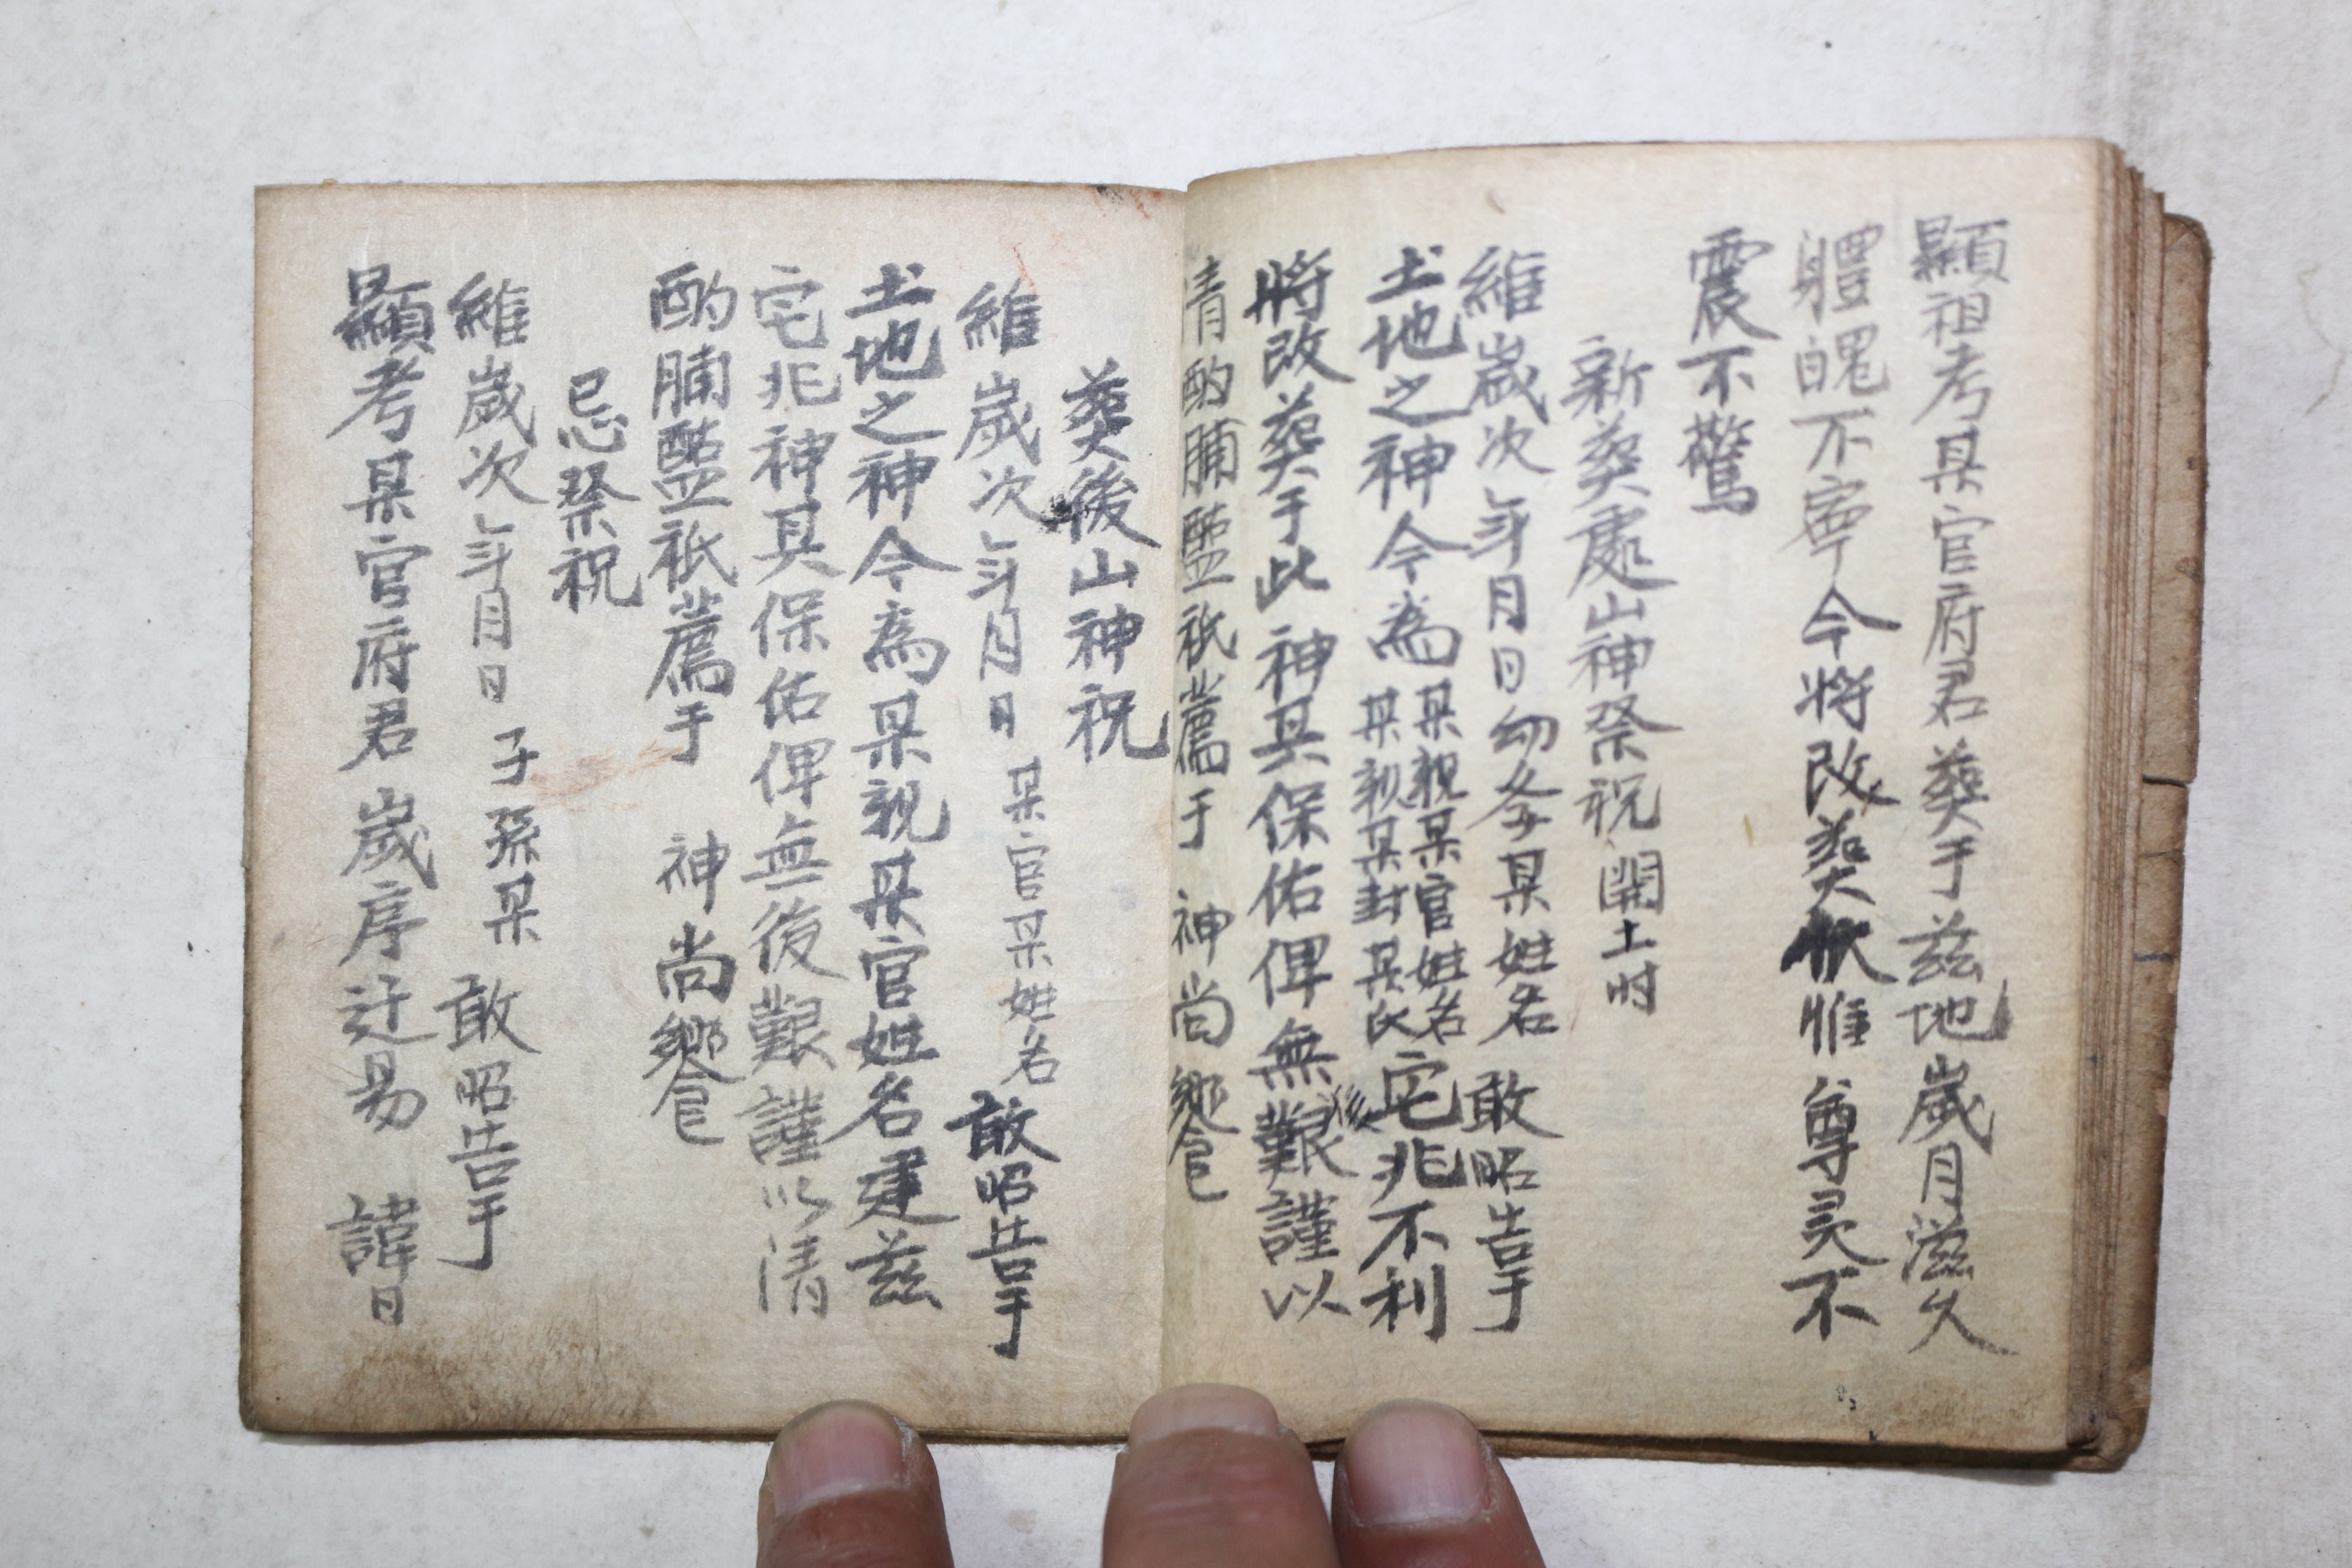 顯祖考某官府君葬于茲地歲月滋久
體魄不寧今將改葬伏惟尊灵不
震不驚
新葬處山神祭祝 開土时
維歲次年月日幼多某姓名敢昭告于
土地之神今為某親某官姓名某親某封某氏宅兆不利
將改葬于此神其保佑俾無後艱謹以
清酌脯醢祗薦于神尚饗
葬後山神祝
維歲次年月日某官某姓名敢昭告于
土地之神今為某親某官姓名建茲
宅兆神其保佑俾無後艱謹以清
酌脯醢祗薦于神尚饗
忌祭祝
維歲次年月日子孫某敢昭告于
顯考某官府君歲序迁易諱日